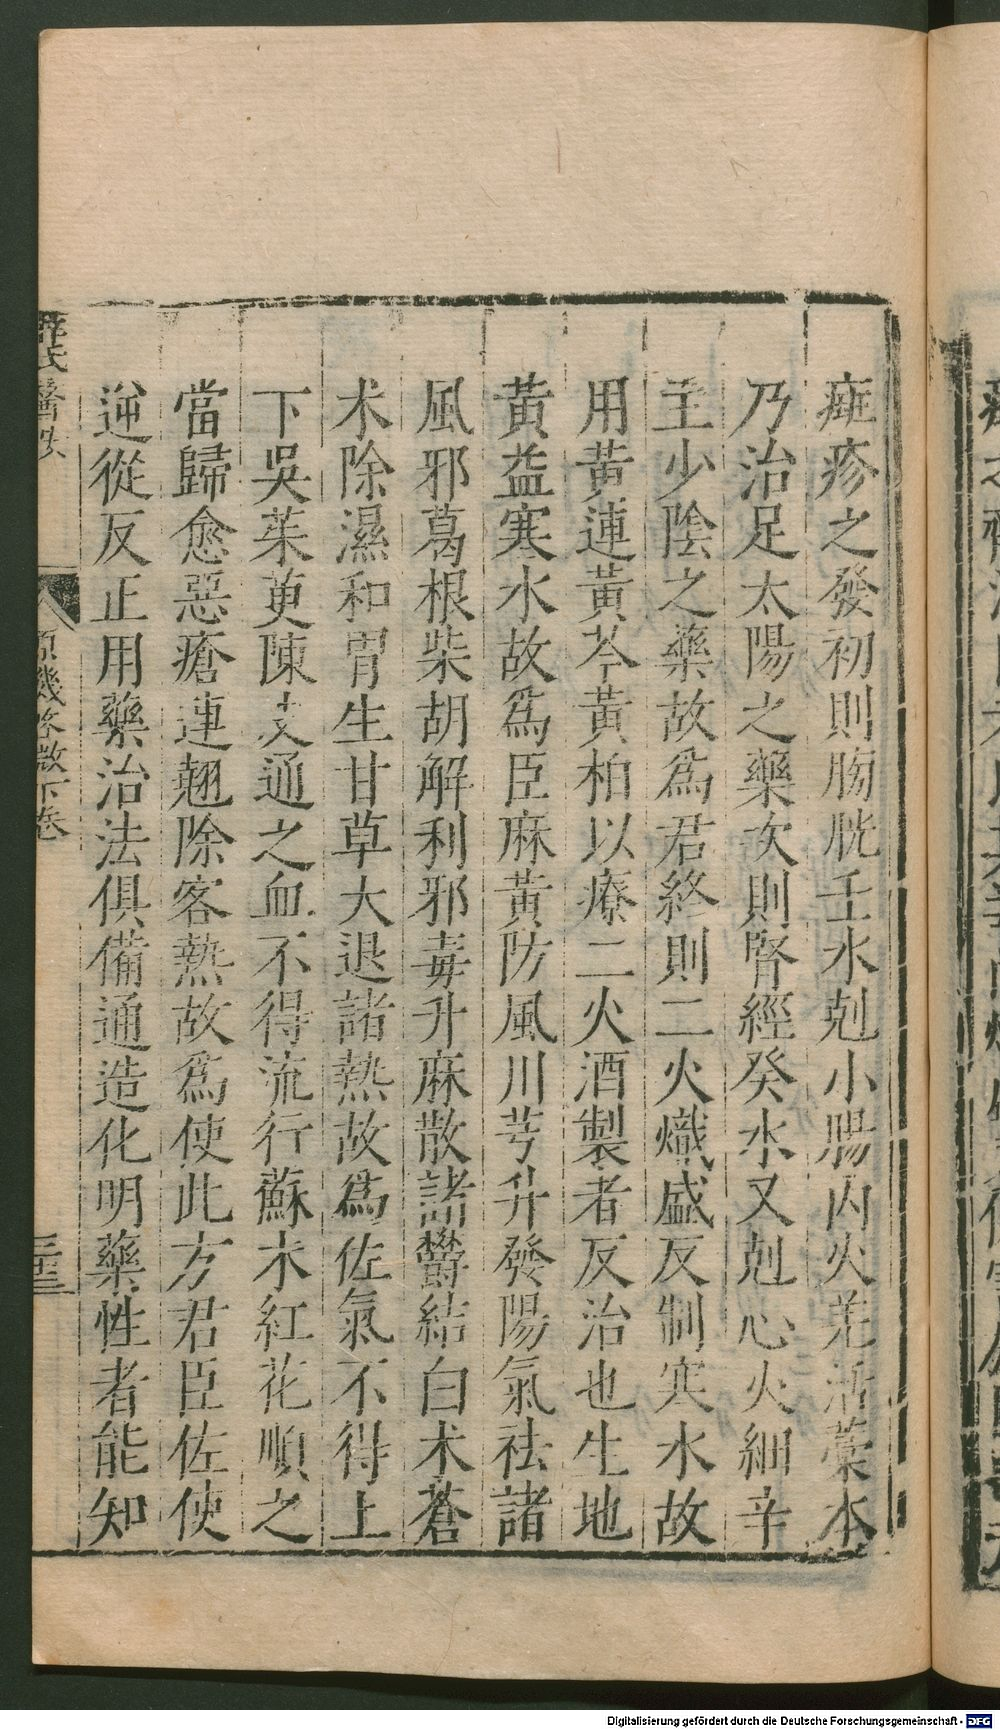 癍疹之發初則膀胱壬水剋小腸丙火羌活藁本
乃治足太陽之藥次則腎經癸水又剋心火細辛
主少陰之藥故爲君終則二火熾盛反制寒水故
用黄連黄芩黄柏以療二火酒製者反治也生地
黄益寒水故爲臣麻黄防風川芎升發陽氣祛諸
風邪葛根柴胡解利邪毒升麻散諸鬱結白术蒼
术除濕和胃生甘草大退諸熱故爲佐氣不得上
下吳茱萸陳皮通之血不得流行蘇木紅花順之
當歸愈惡瘡連翹除客熱故爲使此方君臣佐使
逆從反正用藥治法俱備通造化明藥性者能知
氏醫
原機啓微下卷
Digitalisierung gefördert durch die Deutsche Forschungsgemeinschaft - DFG